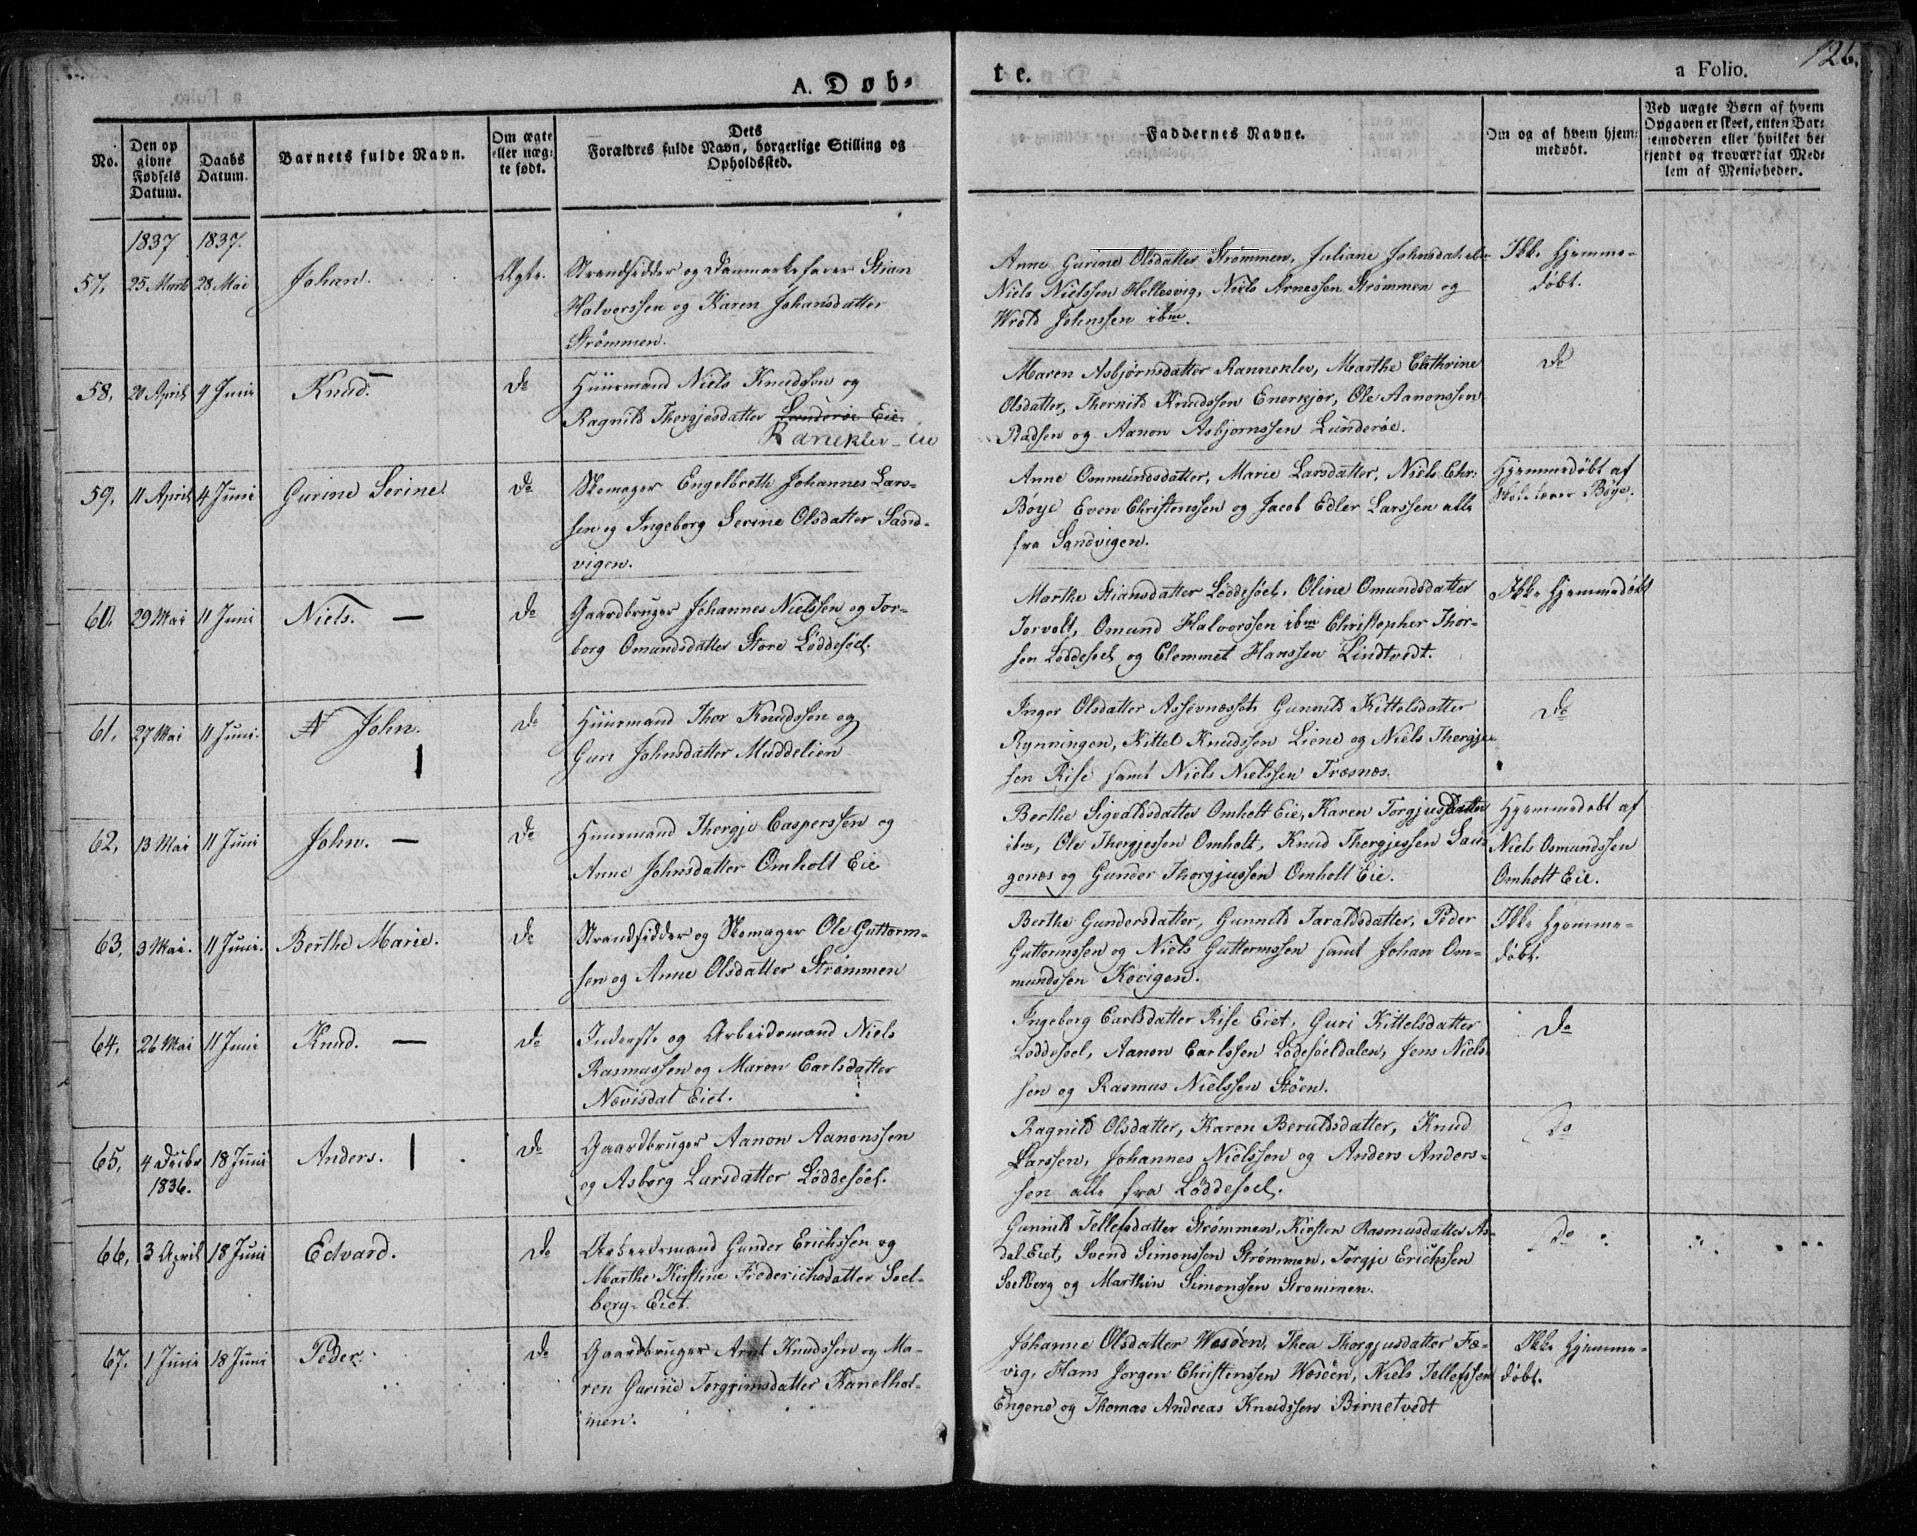 A. Døb-
te.
a Folio.
126.
No.
Den op
givne
Fødsels
Datum.
Daabs
Datum.
Barnets fulde Navn.
Om ægte
eller uæg-
te født.
Dets
Forældres fulde Navn, borgerlige Stilling og
Opholdssted.
Faddernes Navne.
Om og af hvem hjem-
medøbt.
Ved uægte Børn af hvem
Opgaven er skeet, enten Bar-
nemoderen eller hvilket be-
kjendt og troværdigt Med-
lem af Menigheden.
1837 1837.
57. 25 Marts 28 Mai Johan. Ægte. Strandsidder og Danmarksfarer Stian
Halvorssen og Karen Johansdatter
Strømmen.
Anne Gurine Olsdatter Strømmen, Juliane Johnsdatter
Niels Nielssen Hellesvig, Niels Arnessen Strømmen og
Wrold Johnssen ibm.
Ikke hjemme-
døbt.
58. 20 April 4 Juni Knud. Do Huusmand Niels Knudssen og
Ragnild Thorgjesdatter Lunderøe Eie.
Raneklev-Eie
Maren Asbjørnsdatter Ranneklev, Marthe Cathrine
Olsdatter, Thernild Knudssen Enerkjør, Ole Aanonssen
Rødsen og Aanon Asbjornssen Lunderøe.
Do
59. 11 April 4 Juni Gurine Serine. Do Skomager Engelbreth Johannes Lars-
sen og Ingeborg Serine Olsdatter Sand-
vigen.
Anne Ommundsdatter, Marie Larsdatter, Niels Chr:
Bøye Even Christenssen og Jacob Edler Larssen alle
fra Sandvigen.
Hjemmedøbt af
Skolelærer Bøye.
60. 29 Mai 11 Juni Niels. — Do Gaardbruger Johannes Nielssen og Tor-
borg Omundsdatter Store Løddesøel.
Marthe Stiansdatter Løddesøel, Oline Omundsdatter
Jorvolt, Omund Halvorssen ibm Christopher Thor-
sen Løddesoel og Clemmet Hanssen Lindtvedt.
Ikke hjemmedøbt
61. 27 Mai 11 Juni. John. Do Huusmand Thor Knudssen og
Guri Johnsdatter Muddelien
Inger Olsdatter Assevnæsset, Gunnild Kittelsdatter
Rynningen, Kittel Knudssen Liene og Niels Thorgje-
sen Rise samt Niels Nielssen Træsnæs.
Do
62. 13 Mai 11 Juni John. — Do Huusmand Thorgje Casperssen og
Anne Johnsdatter Omholt Eie
Berthe Sigvaldsdatter Omholt Eie, Karen Torgjusdatter
ibm, Ole Thorgjessen Omholt, Knud Thorgjessen Sau-
genæs og Gunder Thorgjussen Omholt Eie.
Hjemmedøbt af
Niels Osmundssen
Omholt Eie.
63. 3 Mai. 11 Juni. Berthe Marie. Do Strandsidder og Skomager Ole Guttorm-
sen og Anne Olsdatter Strømmen
Berthe Gundersdatter, Gunnild Taraldsdatter, Peder
Guttormssen og Niels Guttormssen samt Johan Om-
mundssen Kovigen.
Ikke hjemme-
døbt.
64. 26 Mai 11 Juni Knud. — Do Inderste og Arbeidsmand Niels
Rasmussen og Maren Carlsdatter
Nævisdal Eiet.
Ingeborg Carlsdatter Rise Eiet, Guri Kittelsdatter
Løddesoel, Aanon Carlssen Lødesøeldalen, Jens Niels-
sen og Rasmus Nielssen Støen.
Do
65. 4 Decbr 18 Juni Anders. Do Gaardbruger Aanon Aanonssen
1836.
og Asborg Larsdatter Løddesøel.
Ragnild Olsdatter, Karen Beruldsdatter, Knud
Larssen, Johannes Nielssen og Anders Anders-
sen alle fra Løddesoel.
Do
66. 3 April 18 Juni Edvard. Do Arbeidsmand Gunder Erichssen og
Marthe Kirstine Frederichsdatter Soel-
berg-Eiet.
Gunnild Tellefsdatter Strømmen, Kirsten Rasmusdatter As-
dal-Eiet, Svend Simonssen Strømmen, Torgje Erichssen
Soelberg og Marthin Simonssen Strommen.
Do
67. 1 Juni 18 Juni Peder. Do Gaardbruger Arnt Knudssen og Ma-
ren Gurine Torggrimsdatter Kanelhol-
men.
Johanne Olsdatter Wæsøen, Thea Thorgjusdatter Fæ-
vig, Hans Jorgen Christenssen Wæsøen, Niels Tellefssen
Engene og Thomas Andreas Knudssen Birnetvedt
Ikke hjemme-
døbt.